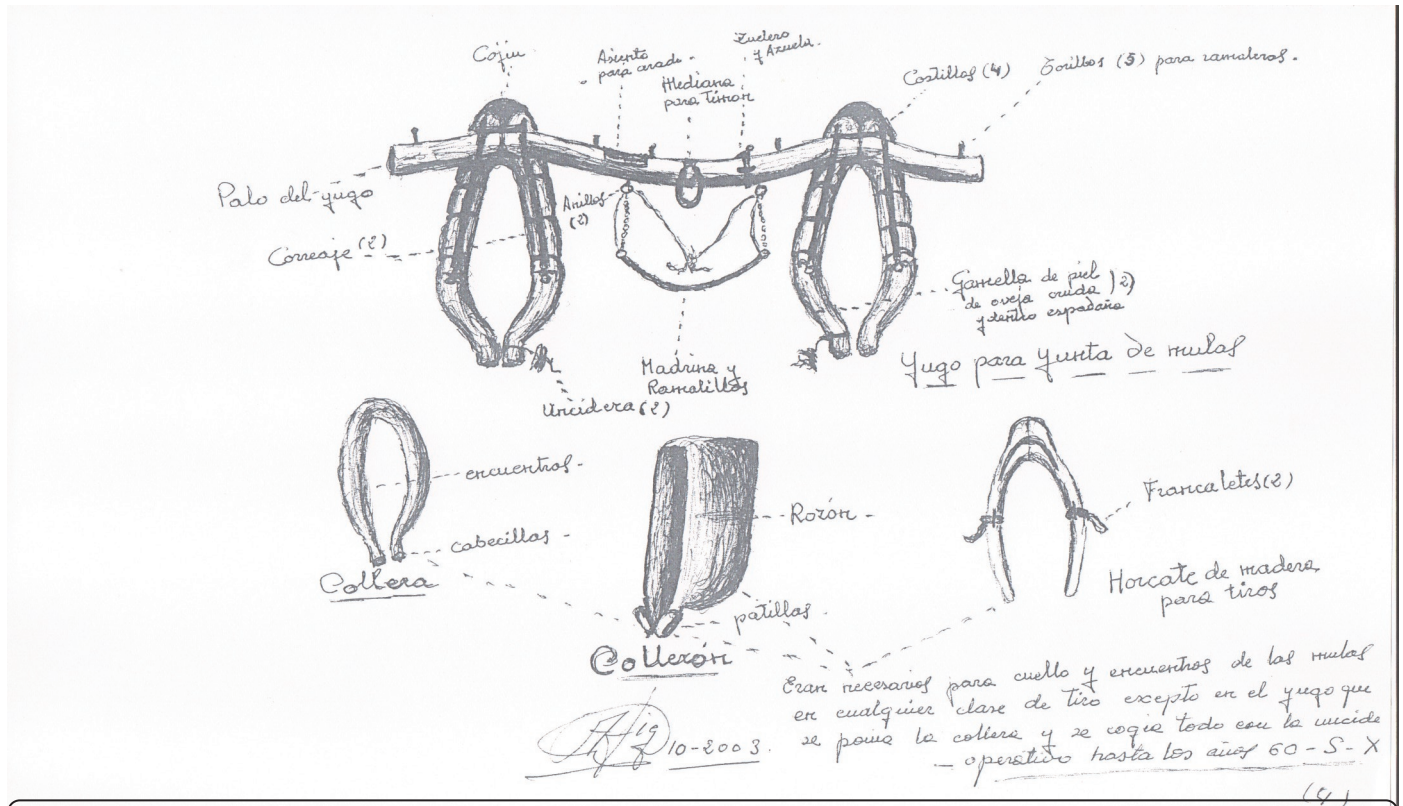 Cojín
Asiento
para arado.
Mediana
para timón
Zuelero
y Azuela.
Costillas (4)
Torillos (5) para ramaleras.
Palo del yugo
Anillos
(2)
Correaje (2)
Gamella de piel
de oveja cruda (2)
y dentro espadaña
Yugo para yunta de mulas
Madrina y
Ramalillos
Uncidera (2)
encuentros -
cabecillas -
Collera
Rozón -
patillas
Collerón
Francaletes (2)
Horcate de madera
para tiros
Eran necesarios para cuello y encuentros de las mulas
en cualquier clase de tiro excepto en el yugo que
se ponía la collera y se cogía todo con la uncide
- operativo hasta los años 60 - S - X
10-2003.